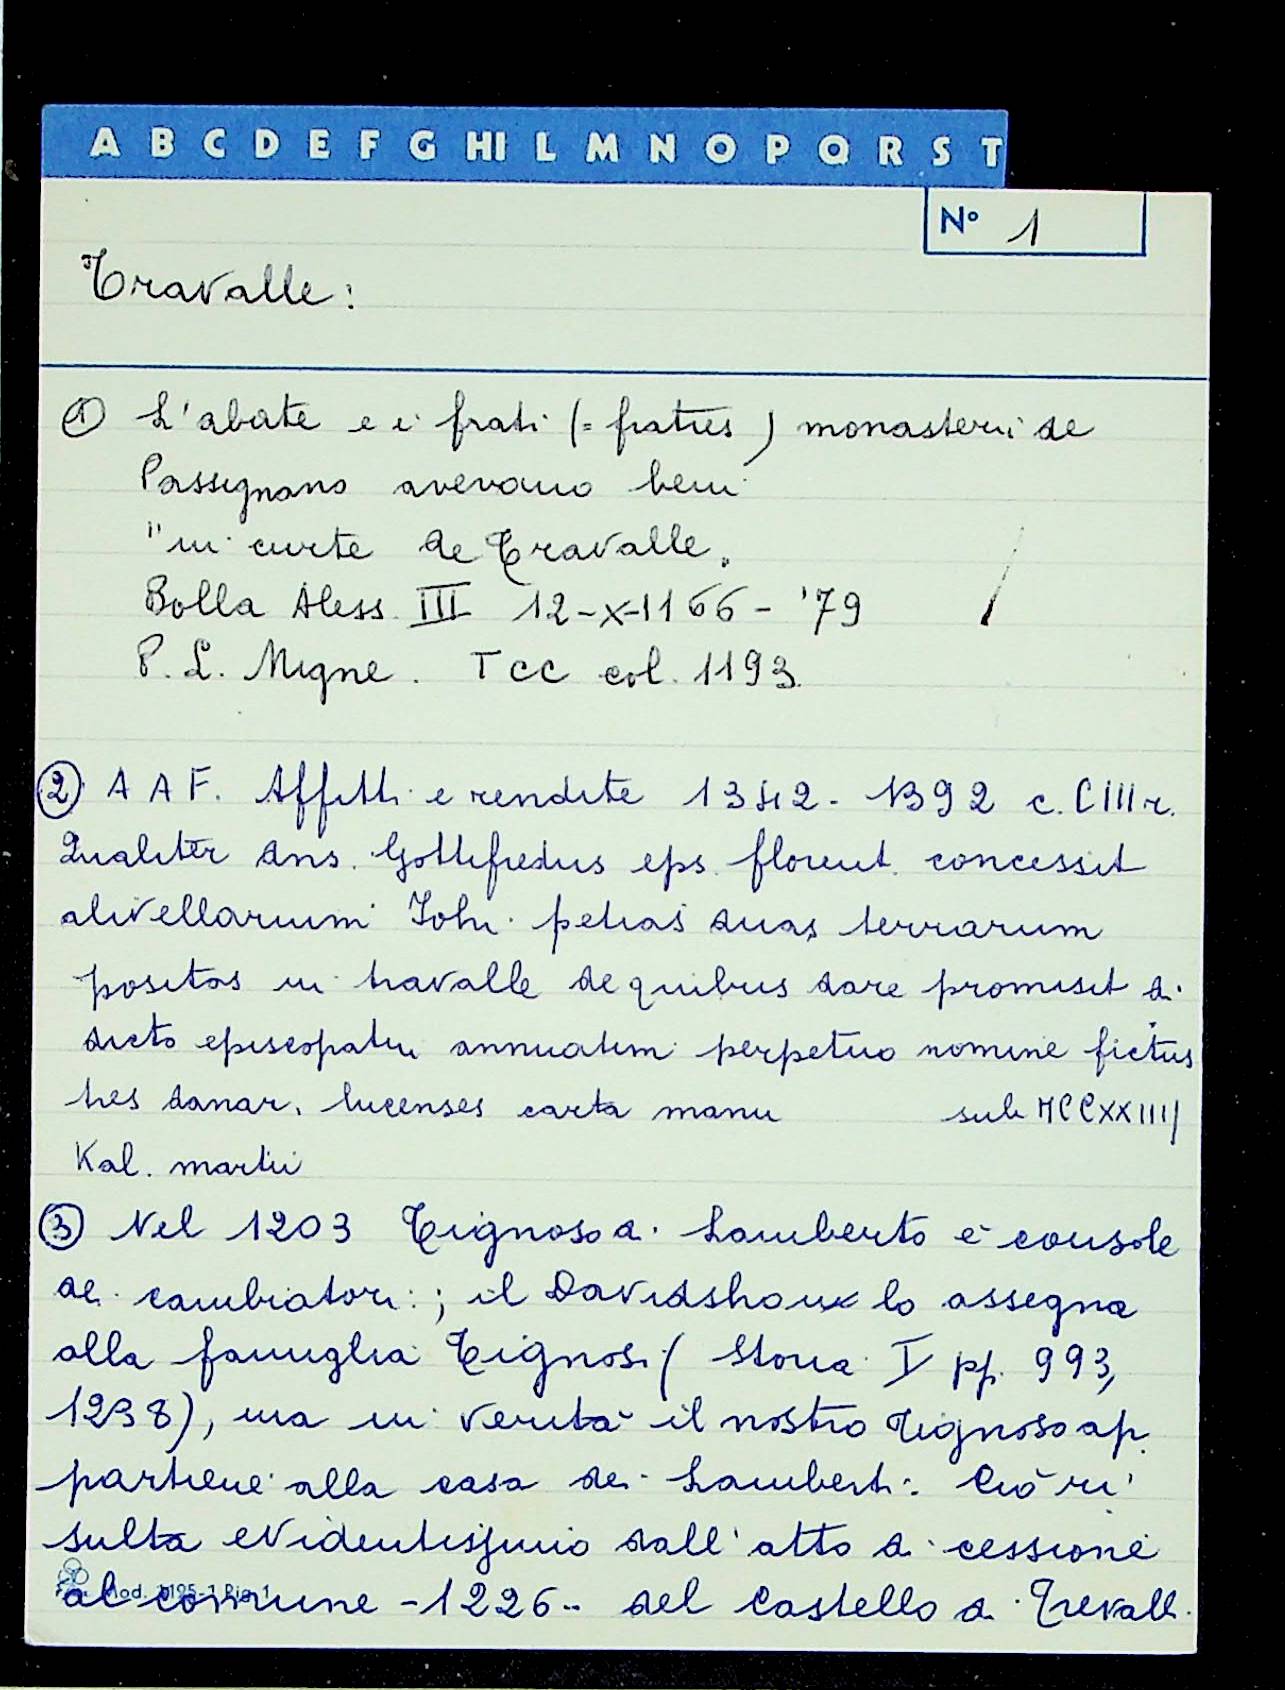 A B C D E F G HI L M N O P Q R S T
N° 1
Travalle:
① L'abate e i frati (= fratres) monasterii de
Passignano avevano beni
"in curte de Travalle„
Bolla Aless. III 12-X-1166-'79
P. L. Migne. T CC col. 1193.
② A A F. Affitti e rendite 1342-1392 c. CIII r.
Qualiter dns. Gottifredus eps. florent. concessit
alivellarium Iohi petias duas terrarum
positas in travalle de quibus dare promisit d.
dicto episcopatui annuatim perpetuo nomine fictus
tres danar. lucenses carta manu sub MCCXXIIII
Kal. martii
③ Nel 1203 Tignoso di Lamberto è console
dei cambiatori; il Davidshon lo assegna
alla famiglia Tignosi (Storia I pp. 993,
1238), ma in verità il nostro Tignoso ap.
partiene alla casa dei Lamberti. Ciò ri'
sulta evidentissimo dall'atto di cessione
Mod. 1195-1 Rig. 1
al comune -1226- del Castello di Trevalli.